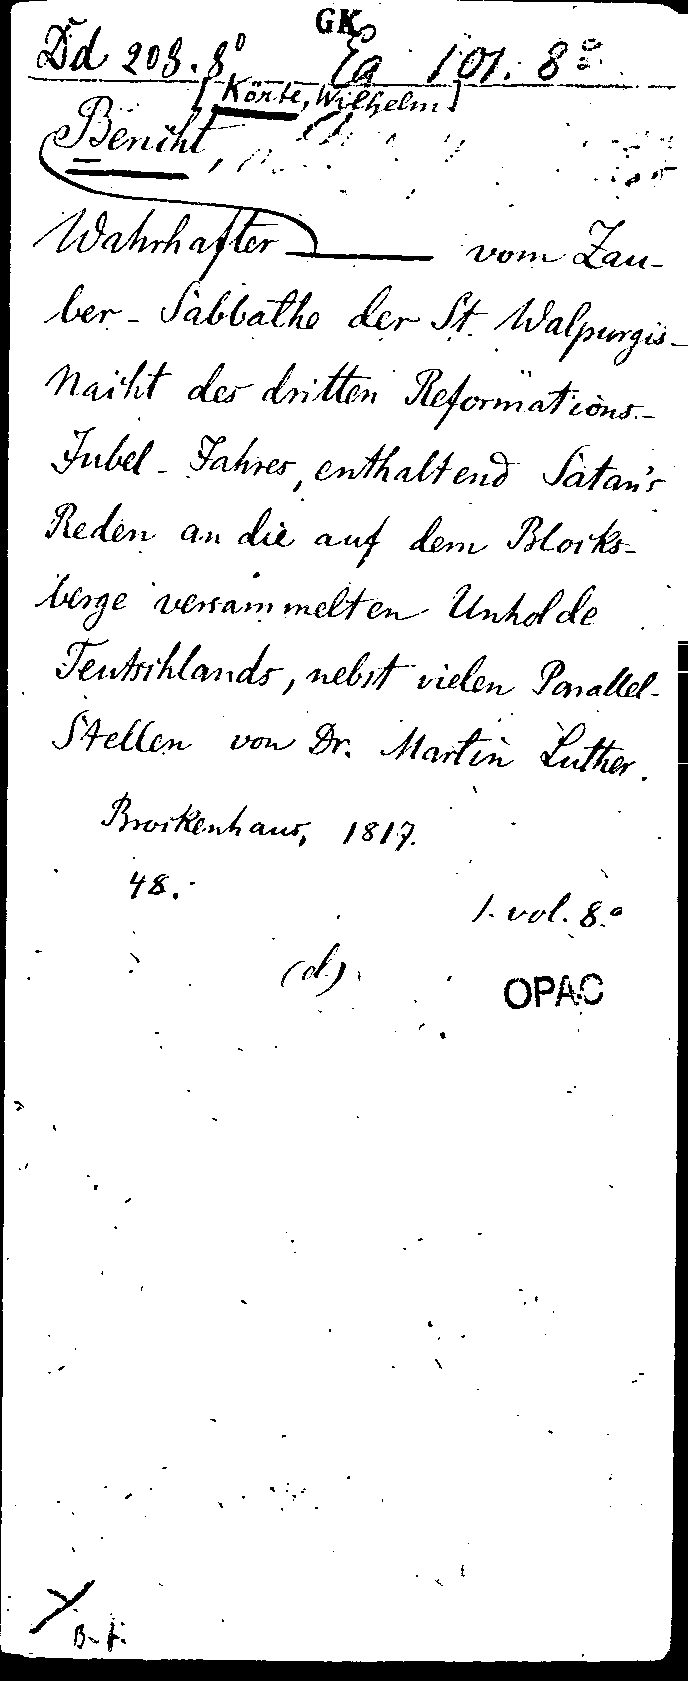 GK
Dd 208. 8° Ea 101. 8°
[Körte, Wilhelm]
Bericht,
Wahrhafter ——— vom Zau-
ber-Sabbathe der St. Walpurgis-
Nacht des dritten Reformations-
Jubel-Jahres, enthaltend Satan's
Reden an die auf dem Blocks-
berge versammelten Unholde
Teutschlands, nebst vielen Parallel-
Stellen von Dr. Martin Luther.
Brockenhaus, 1817.
48.
1. vol. 8.°
(d.)
OPAC
B. f.